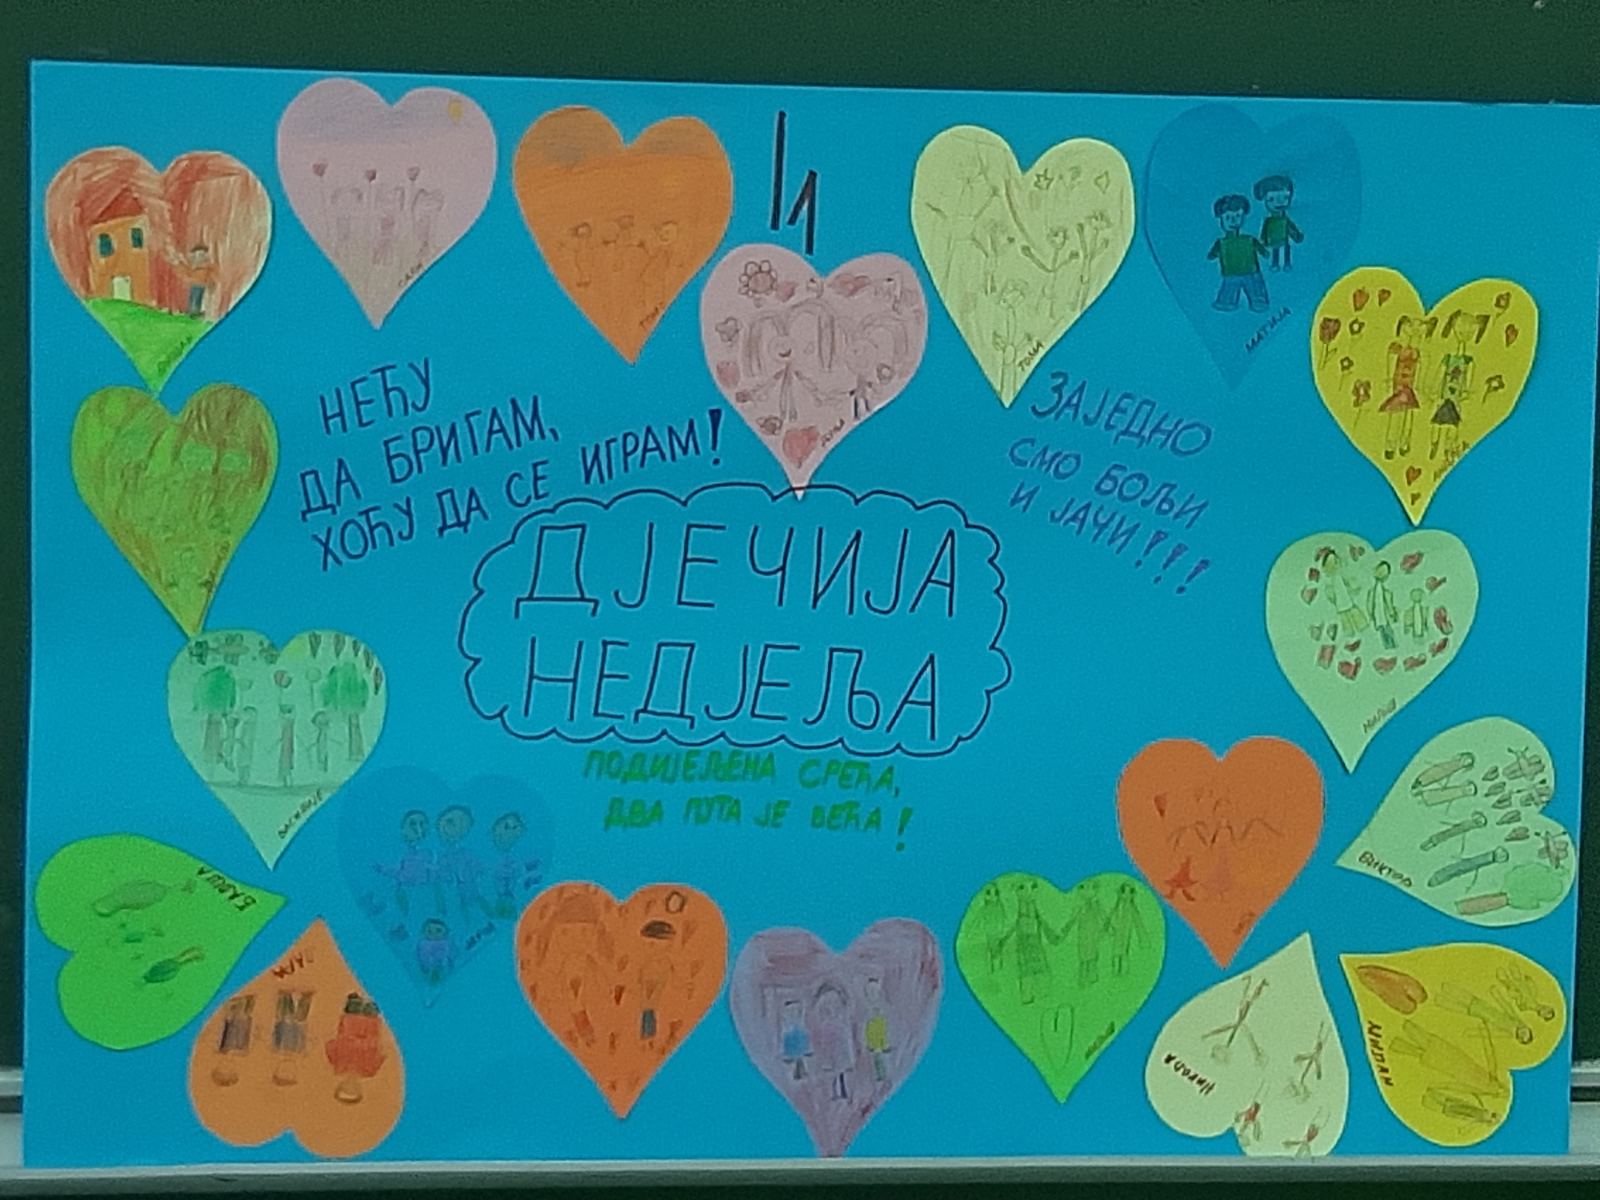 I1
НЕЋУ
ДА БРИГАМ,
ХОЋУ ДА СЕ ИГРАМ!
ЗАЈЕДНО
СМО БОЉИ
И ЈАЧИ!!!
ДЈЕЧИЈА
НЕДЈЕЉА
ПОДИЈЕЉЕНА СРЕЋА,
ДВА ПУТА ЈЕ ВЕЋА!
ТОМА
МАТИЈА
ВАСИЛИЈЕ
ВИКТОР
НИКОЛА
МИЛАН